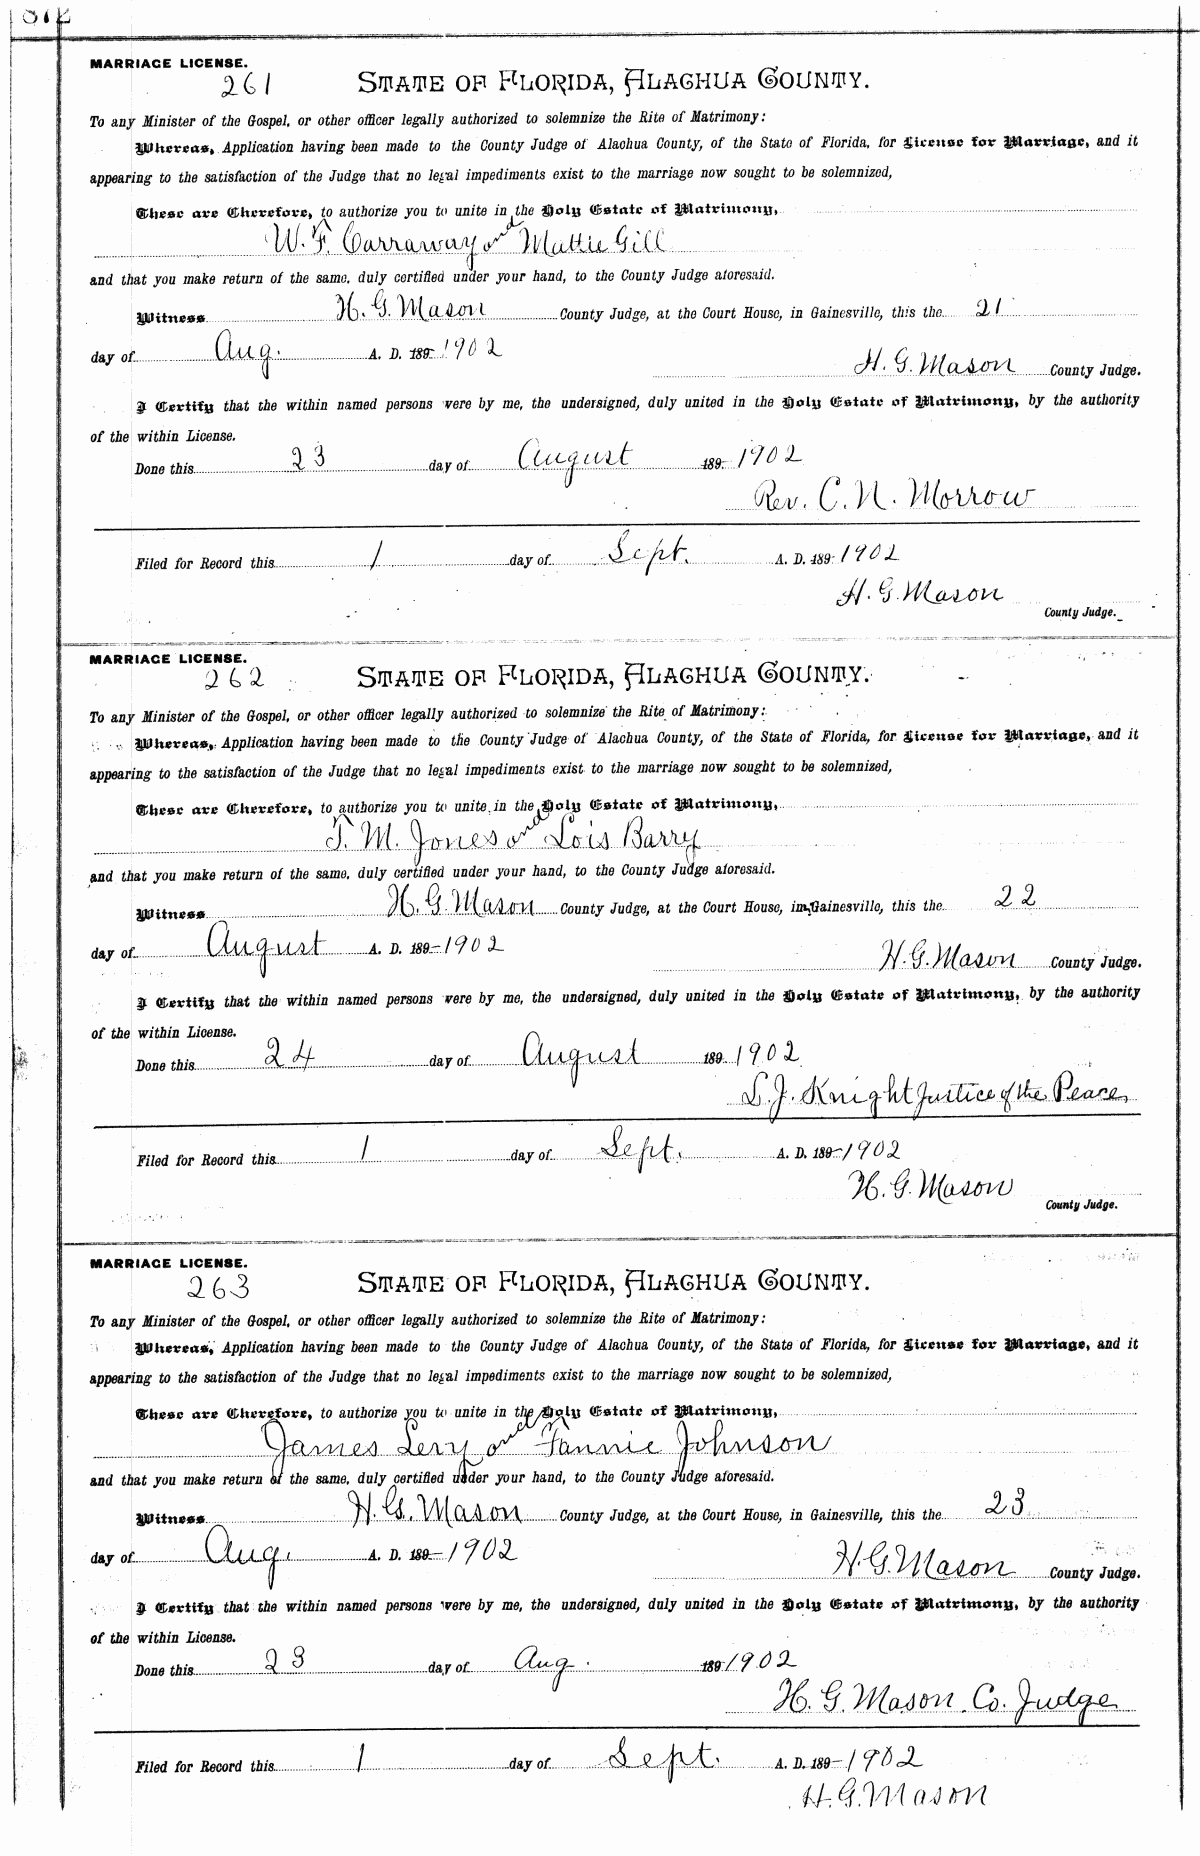 MARRIAGE LICENSE.
261
STATE OF FLORIDA, ALACHUA COUNTY.
To any Minister of the Gospel, or other officer legally authorized to solemnize the Rite of Matrimony:
Whereas, Application having been made to the County Judge of Alachua County, of the State of Florida, for License for Marriage, and it
appearing to the satisfaction of the Judge that no legal impediments exist to the marriage now sought to be solemnized,
These are Therefore, to authorize you to unite in the Holy Estate of Matrimony,
W. F. Carraway and Mattie Gill
and that you make return of the same, duly certified under your hand, to the County Judge aforesaid.
Witness H. G. Mason County Judge, at the Court House, in Gainesville, this the 21
day of Aug. A. D. 189- 1902
H. G. Mason County Judge.
I Certify that the within named persons were by me, the undersigned, duly united in the Holy Estate of Matrimony, by the authority
of the within License.
Done this 23 day of August 189- 1902
Rev. C. N. Morrow
Filed for Record this 1 day of Sept. A. D. 189- 1902
H. G. Mason
County Judge.
MARRIAGE LICENSE.
262
STATE OF FLORIDA, ALACHUA COUNTY.
To any Minister of the Gospel, or other officer legally authorized to solemnize the Rite of Matrimony:
Whereas, Application having been made to the County Judge of Alachua County, of the State of Florida, for License for Marriage, and it
appearing to the satisfaction of the Judge that no legal impediments exist to the marriage now sought to be solemnized,
These are Therefore, to authorize you to unite in the Holy Estate of Matrimony,
T. M. Jones and Lois Barry
and that you make return of the same, duly certified under your hand, to the County Judge aforesaid.
Witness H. G. Mason County Judge, at the Court House, in Gainesville, this the 22
day of August A. D. 189- 1902
H. G. Mason County Judge.
I Certify that the within named persons were by me, the undersigned, duly united in the Holy Estate of Matrimony, by the authority
of the within License.
Done this 24 day of August 189- 1902
L. J. Knight Justice of the Peace
Filed for Record this 1 day of Sept. A. D. 189- 1902
H. G. Mason
County Judge.
MARRIAGE LICENSE.
263
STATE OF FLORIDA, ALACHUA COUNTY.
To any Minister of the Gospel, or other officer legally authorized to solemnize the Rite of Matrimony:
Whereas, Application having been made to the County Judge of Alachua County, of the State of Florida, for License for Marriage, and it
appearing to the satisfaction of the Judge that no legal impediments exist to the marriage now sought to be solemnized,
These are Therefore, to authorize you to unite in the Holy Estate of Matrimony,
James Levy and Fannie Johnson
and that you make return of the same, duly certified under your hand, to the County Judge aforesaid.
Witness H. G. Mason County Judge, at the Court House, in Gainesville, this the 23
day of Aug. A. D. 189- 1902
H. G. Mason County Judge.
I Certify that the within named persons were by me, the undersigned, duly united in the Holy Estate of Matrimony, by the authority
of the within License.
Done this 23 day of Aug. 189 1902
H. G. Mason Co. Judge
Filed for Record this 1 day of Sept. A. D. 189- 1902
H. G. Mason